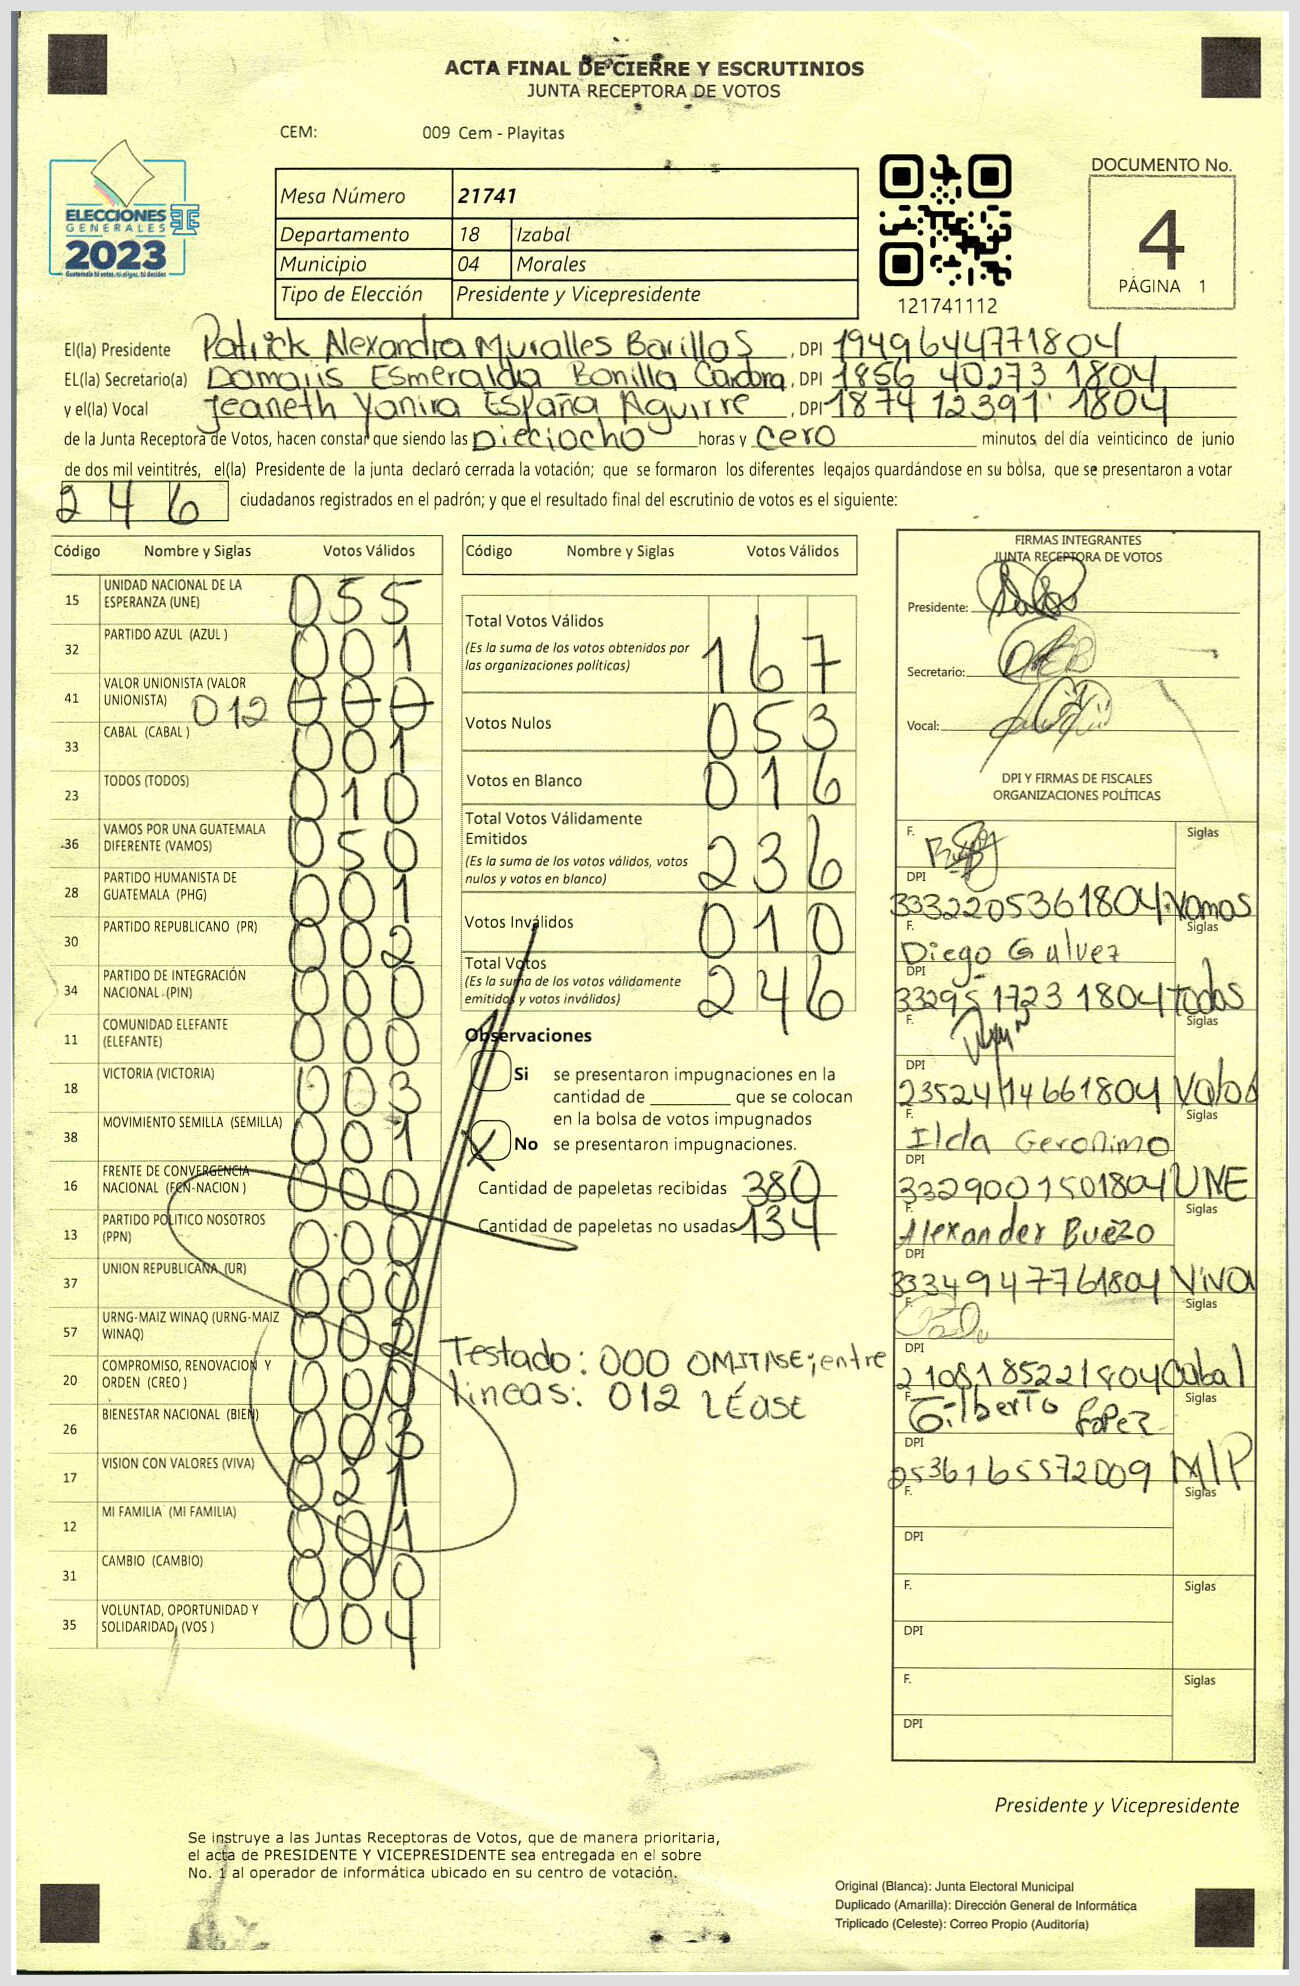 ACTA FINAL DE CIERRE Y ESCRUTINIOS
JUNTA RECEPTORA DE VOTOS
CEM: 009 Cem - Playitas
ELECCIONES
GENERALES
2023
Guatemala tú votas, tú eliges, tú decides
Mesa Número 21741
Departamento 18 Izabal
Municipio 04 Morales
Tipo de Elección Presidente y Vicepresidente
121741112
DOCUMENTO No.
4
PÁGINA 1
El(la) Presidente Patrick Alexandra Muralles Barillas, DPI 1949644771804
EL(la) Secretario(a) Damaris Esmeralda Bonilla Cardona, DPI 1856 40273 1804
y el(la) Vocal Jeaneth Yanira España Aguirre, DPI 1874 12391 1804
de la Junta Receptora de Votos, hacen constar que siendo las Dieciocho horas y cero minutos del día veinticinco de junio
de dos mil veintitrés, el(la) Presidente de la junta declaró cerrada la votación; que se formaron los diferentes legajos quardándose en su bolsa, que se presentaron a votar
246 ciudadanos registrados en el padrón; y que el resultado final del escrutinio de votos es el siguiente:
Código Nombre y Siglas Votos Válidos
15 UNIDAD NACIONAL DE LA ESPERANZA (UNE) 055
32 PARTIDO AZUL (AZUL ) 001
41 VALOR UNIONISTA (VALOR UNIONISTA) 012 000
33 CABAL (CABAL ) 001
23 TODOS (TODOS) 010
36 VAMOS POR UNA GUATEMALA DIFERENTE (VAMOS) 050
28 PARTIDO HUMANISTA DE GUATEMALA (PHG) 001
30 PARTIDO REPUBLICANO (PR) 002
34 PARTIDO DE INTEGRACIÓN NACIONAL (PIN) 000
11 COMUNIDAD ELEFANTE (ELEFANTE) 000
18 VICTORIA (VICTORIA) 003
38 MOVIMIENTO SEMILLA (SEMILLA) 001
16 FRENTE DE CONVERGENCIA NACIONAL (FCN-NACION ) 000
13 PARTIDO POLITICO NOSOTROS (PPN) 000
37 UNION REPUBLICANA (UR) 000
57 URNG-MAIZ WINAQ (URNG-MAIZ WINAQ) 002
20 COMPROMISO, RENOVACION Y ORDEN (CREO ) 000
26 BIENESTAR NACIONAL (BIEN) 003
17 VISION CON VALORES (VIVA) 021
12 MI FAMILIA (MI FAMILIA) 001
31 CAMBIO (CAMBIO) 000
35 VOLUNTAD, OPORTUNIDAD Y SOLIDARIDAD (VOS ) 004
Código Nombre y Siglas Votos Válidos
Total Votos Válidos 167
(Es la suma de los votos obtenidos por
las organizaciones políticas)
Votos Nulos 053
Votos en Blanco 016
Total Votos Válidamente
Emitidos 236
(Es la suma de los votos válidos, votos
nulos y votos en blanco)
Votos Inválidos 010
Total Votos 246
(Es la suma de los votos válidamente
emitidos y votos inválidos)
Observaciones
Si se presentaron impugnaciones en la
cantidad de ________ que se colocan
en la bolsa de votos impugnados
X No se presentaron impugnaciones.
Cantidad de papeletas recibidas 380
Cantidad de papeletas no usadas 134
Testado: 000 OMITASE; entre
lineas: 012 LÉASE
FIRMAS INTEGRANTES
JUNTA RECEPTORA DE VOTOS
Presidente:
Secretario:
Vocal:
DPI Y FIRMAS DE FISCALES
ORGANIZACIONES POLÍTICAS
F. Siglas
DPI
3332205361804 Vamos
F. Diego Galvez Siglas
DPI
332951723 1804 Todos
F. Siglas
DPI
2352414661804 Valor
F. Ilda Geronimo Siglas
DPI
3329001501804 UNE
F. Alexander Buezo Siglas
DPI
3334947761804 Viva
F. Siglas
DPI
2108185221804 Cabal
F. Gilberto Lopez Siglas
DPI
2536165572009 MLP
F. Siglas
DPI
F. Siglas
DPI
F. Siglas
DPI
Presidente y Vicepresidente
Se instruye a las Juntas Receptoras de Votos, que de manera prioritaria,
el acta de PRESIDENTE Y VICEPRESIDENTE sea entregada en el sobre
No. 1 al operador de informática ubicado en su centro de votación.
Original (Blanca): Junta Electoral Municipal
Duplicado (Amarilla): Dirección General de Informática
Triplicado (Celeste): Correo Propio (Auditoría)